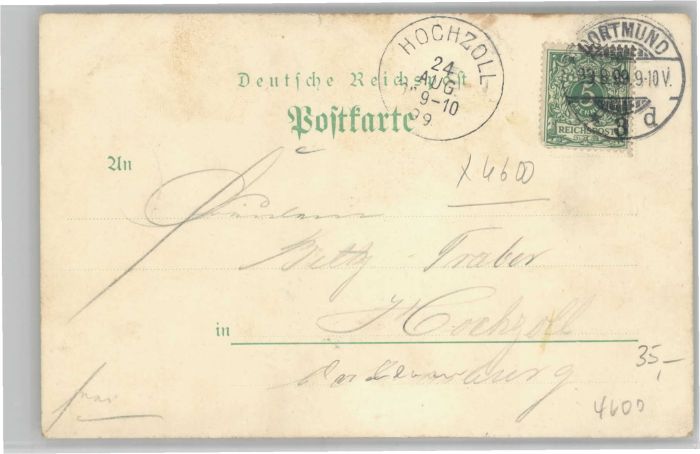 HOCHZOLL
24
AUG.
9-10
99
DORTMUND
23.8.99.9-10V.
* 3 d
5
REICHSPOST
Deutsche Reichspost
Postkarte
x 4600
An
Fräulein
Betty Traber
in Hochzoll
35,-
4600